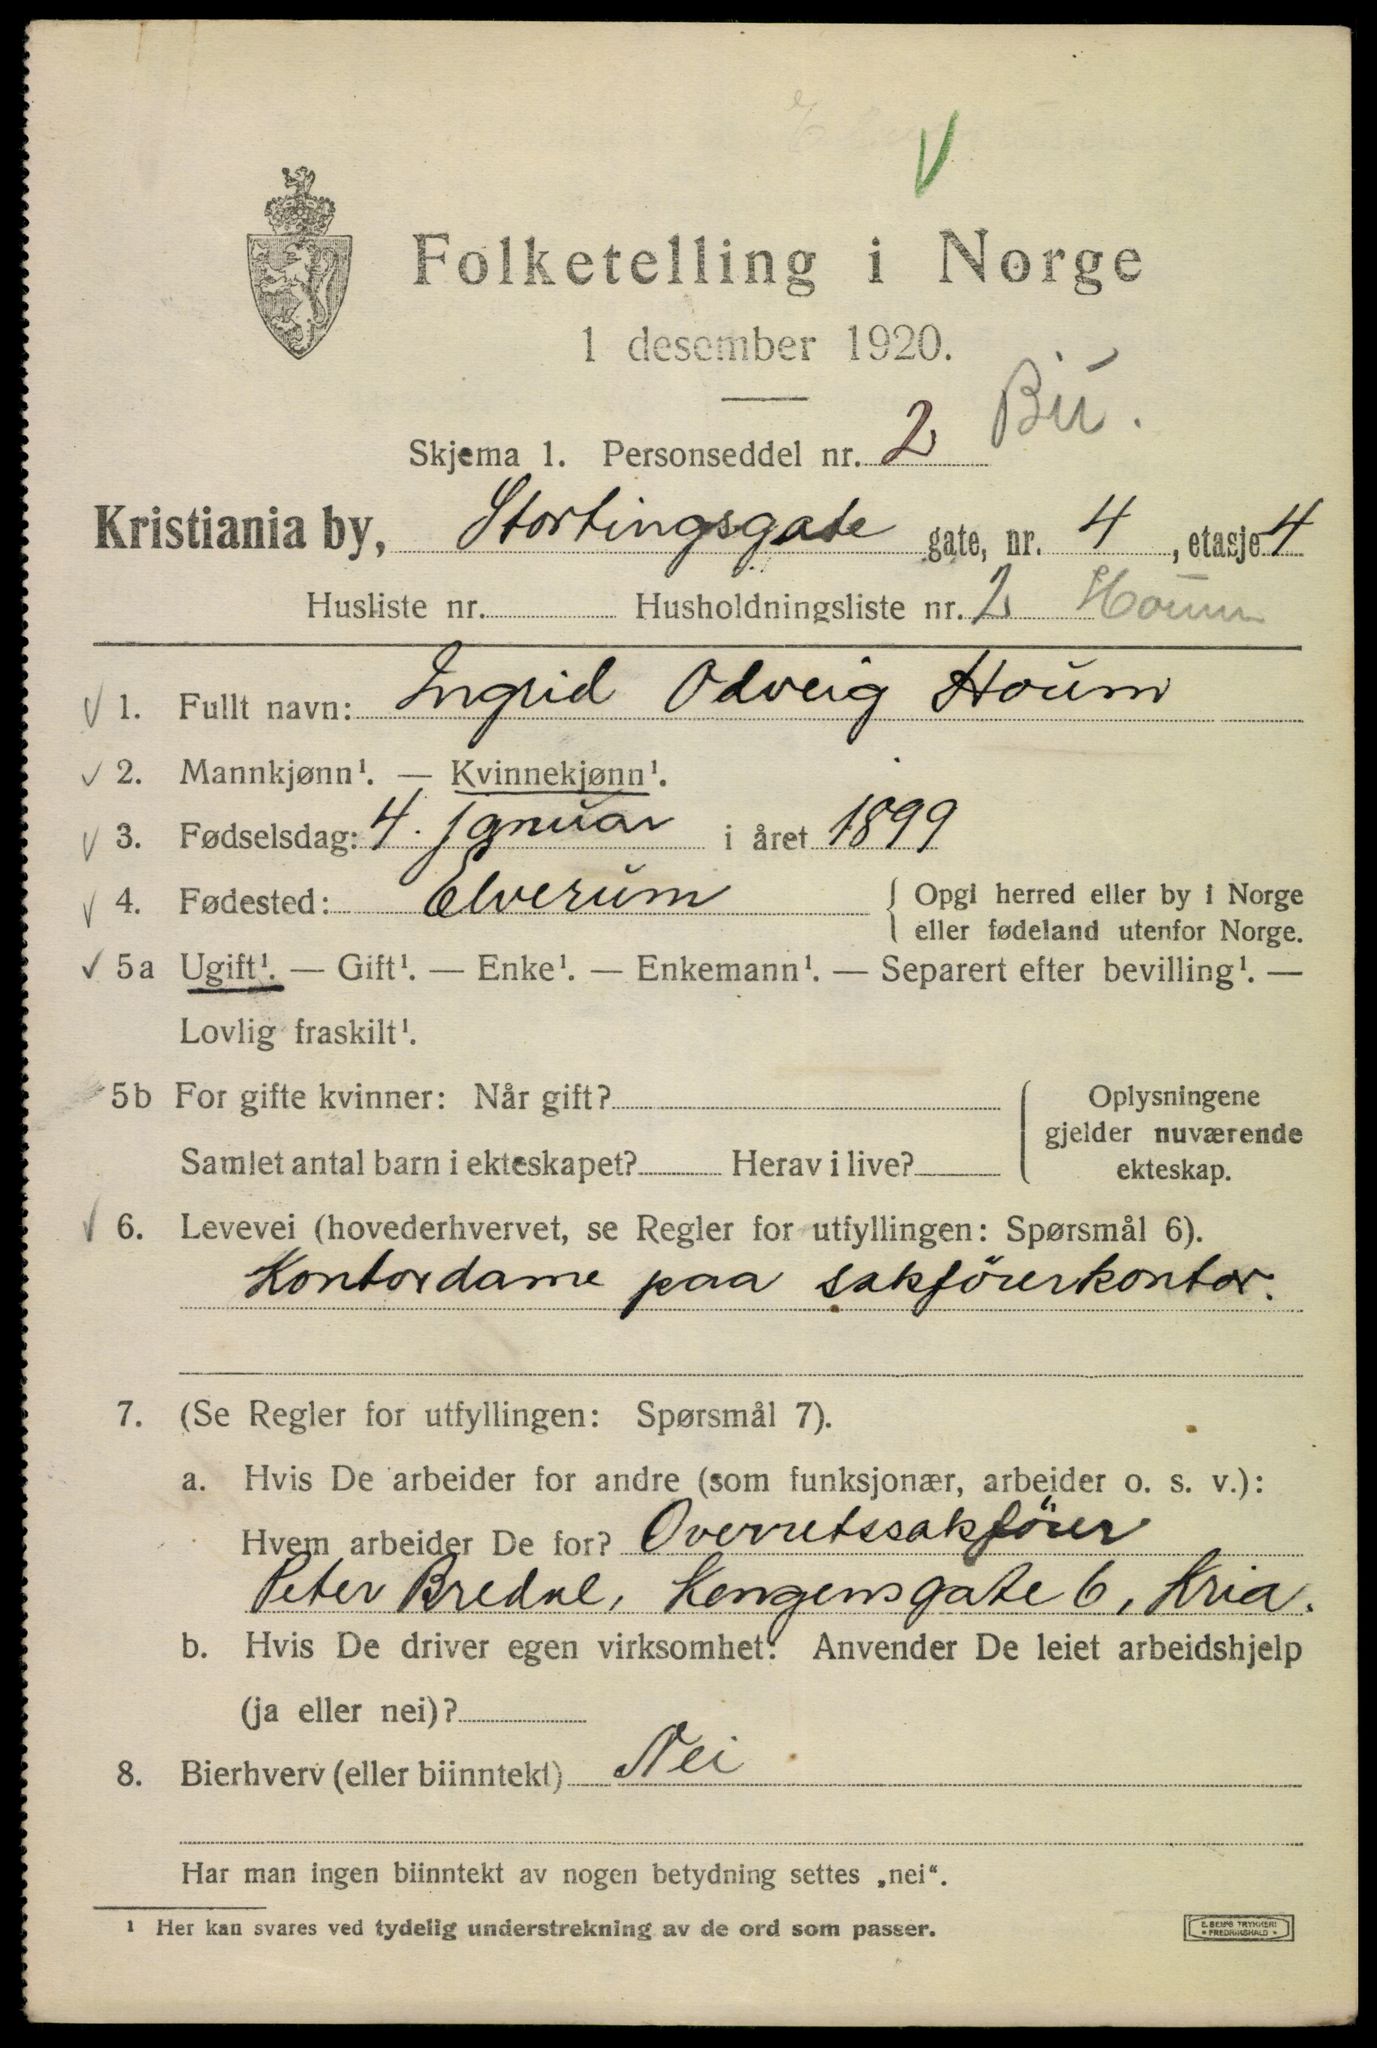 Folketelling i Norge
1 desember 1920.
Skjema 1. Personseddel nr. 2
Kristiania by, Stortingsgate gate, nr. 4, etasje 4
Husliste nr. Husholdningsliste nr. 2 Houm
1. Fullt navn: Ingrid Odveig Houm
2. Mannkjønn¹. — Kvinnekjønn¹.
3. Fødselsdag: 4. januar i året 1899
4. Fødested: Elverum { Opgi herred eller by i Norge
eller fødeland utenfor Norge.
5a Ugift¹. — Gift¹. — Enke¹. — Enkemann¹. — Separert efter bevilling¹. —
Lovlig fraskilt¹.
5b For gifte kvinner: Når gift?
Samlet antal barn i ekteskapet? Herav i live?
Oplysningene
gjelder nuværende
ekteskap.
6. Levevei (hovederhvervet, se Regler for utfyllingen: Spørsmål 6).
Kontordame paa sakförerkontor.
7. (Se Regler for utfyllingen: Spørsmål 7).
a. Hvis De arbeider for andre (som funksjonær, arbeider o. s. v.):
Hvem arbeider De for? Overretssakförer
Peter Bredal, Kongensgate 6, Kria.
b. Hvis De driver egen virksomhet: Anvender De leiet arbeidshjelp
(ja eller nei)?
8. Bierhverv (eller biinntekt) Nei
Har man ingen biinntekt av nogen betydning settes „nei“.
¹ Her kan svares ved tydelig understrekning av de ord som passer.
E. SEM'S TRYKKERI
FREDRIKSHALD